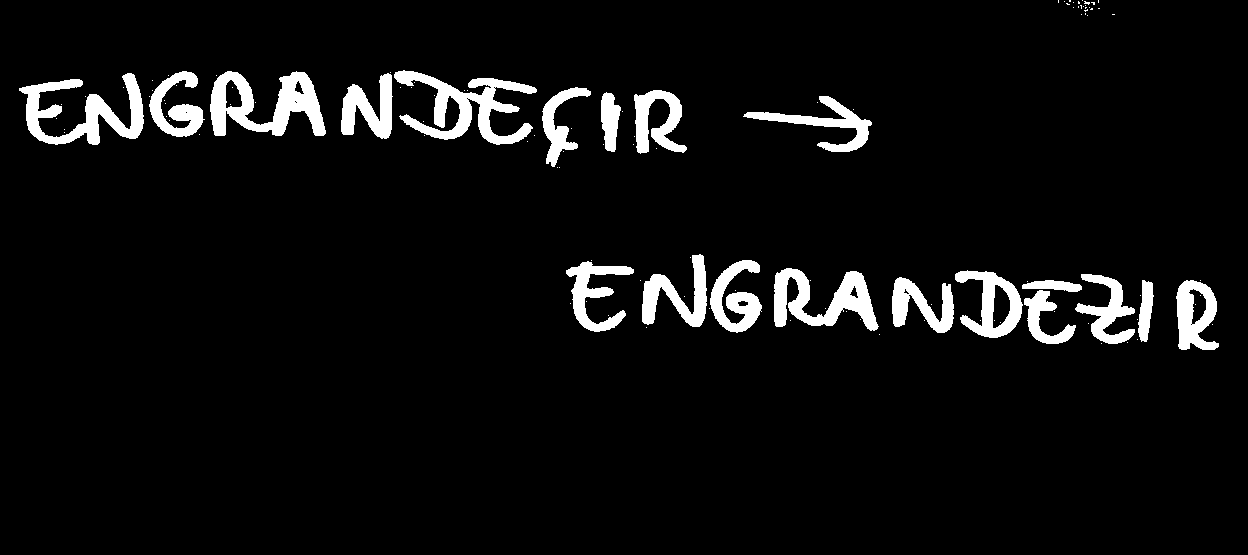 ENGRANDEÇIR →
ENGRANDEZIR